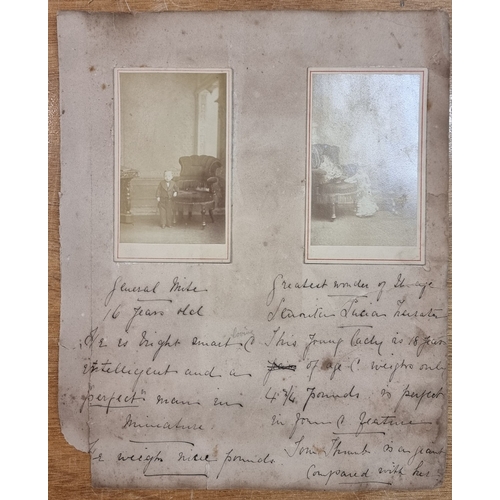 General Mite
16 years old
He is bright smart &
intelligent and a
perfect man in
Miniature
He weighs nine pounds
Greatest wonder of the age
Senorita Lucia Zarate
This young Lady is 18 years
of age & weighs only
4 3/4 pounds is perfect
in form & feature
Tom Thumb is a giant
Compared with her